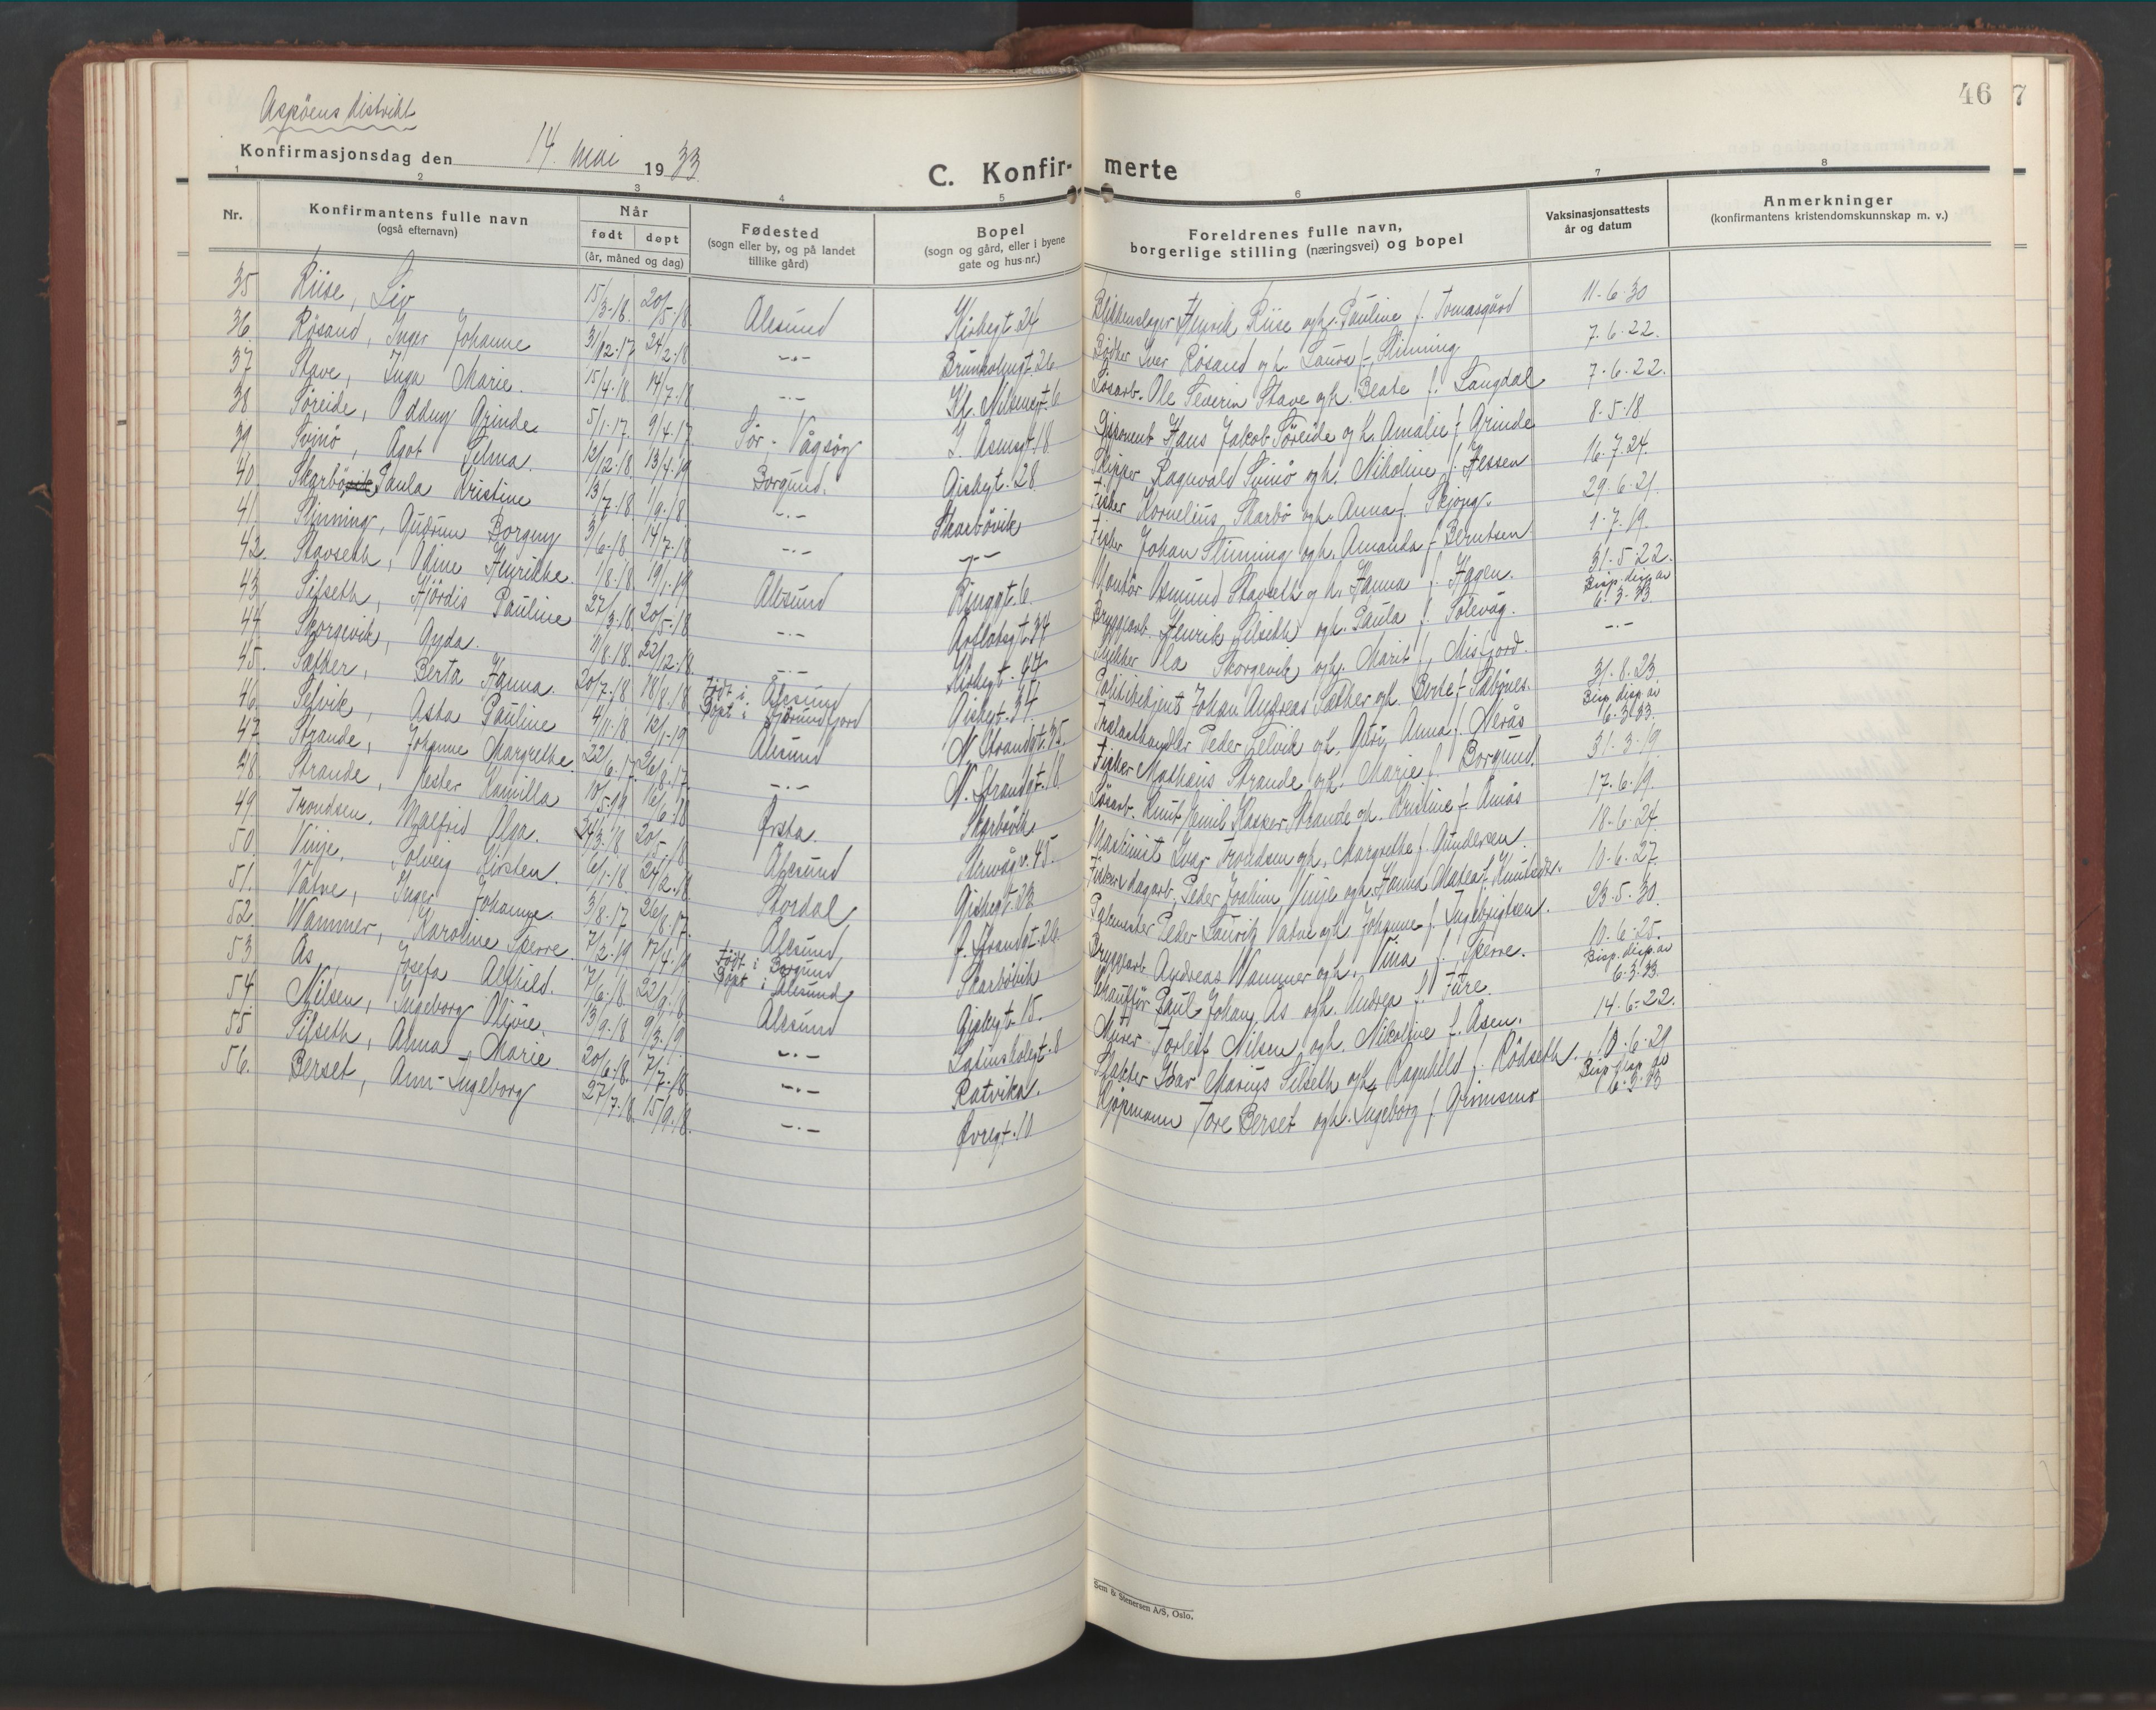 Aspöens distrikt
46 7
Konfirmasjonsdag den 14. mai 1933
C. Konfir- merte
1 2 3 4 5 6 7 8
Nr.
Konfirmantens fulle navn
(også efternavn)
Når
født døpt
(år, måned og dag)
Fødested
(sogn eller by, og på landet
tillike gård)
Bopel
(sogn og gård, eller i byene
gate og hus nr.)
Foreldrenes fulle navn,
borgerlige stilling (næringsvei) og bopel
Vaksinasjonsattests
år og datum
Anmerkninger
(konfirmantens kristendomskunnskap m. v.)
35 Riise, Liv 15/3-18. 20/5-18. Ålesund Kirkegt. 24 Blikkenslager Henrik Riise og h. Pauline f. Tomasgård 11-6-30
36. Røsand, Inger Johanne 31/12-17 24/2-18 -"- Brunholmgt. 26 Bödker Iver Røsand og h. Laura f. Slinning 7.6.22.
37 Stave, Inga Marie. 15/4-18 14/7-18 -"- Kl. Nilsensgt. 6 Løsarb. Ole Severin Stave og h. Beate f. Langdal 7-6-22.
38 Søreide, Oddny Grinde 5/1-17. 9/4-17 Sør-Vågsøy I. Åsensgt. 18. Disponent Hans Jakob Søreide og h. Amalie f. Grinde 8-5-18
39 Svinö, Ågot Selma. 12/12-18 13/4-19 Borgund. Giskegt. 28 Skipper Ragnvald Svinö og h. Nikoline f. Hessen 16.7.24.
40. Skarbö Paula Kristine 13/7-18 1/9-18. -"- Skarbövik Fisker Kornelius Skarbö og h. Anna f. Skjong. 29-6-21.
41 Slinning, Gudrun Borgny 3/6-18 14/7-18 -"- -"- Fisker Johan Slinning og h. Amanda f. Berntsen 1-7-19.
42. Stavseth, Odine Henrikke. 1/8-18. 19/1-19 Ålesund Ringgt. 6. Montör Åsmund Stavseth og h. Hanna f. Hagen. 31-5-22.
43 Silseth, Hjördis Pauline 27/3-18. 20/5-18 -"- 34 Bryggearb. Henrik Silseth og h. Paula f. Solevåg. Bisp. disp. av 6-3-33.
44 Skorgevik, Gyda. 11/8-18. 22/12-18 -"- Kirkegt. 47 Snekker Ola Skorgevik og h. Marit f. Misfjord. -"-
45. Sæther, Berta Hanna. 20/7-18 18/8-18. Född i Ålesund Döpt i Hjörundfjord Giskegt. 34 Politibetjent Johan Andreas Sæther og h. Berte f. 31-8-23
46. Selvik, Asta Pauline 4/11-18 12/1-19 Ålesund N. Strandgt. 35. Trælasthandler Peder Selvik og h. Guri Anna f. Nerås Bisp. disp. av 6-3-33.
47. Strande, Johanne Margrethe. 22/6-17. 26/8-17. -"- N. Strandgt. 18 Fisker Mathias Strande og h. Marie f. Borgund. 31-3-19
48. Strande, Hester Kamilla 10/5-19 16/6-18 Ørsta. Skarbövik Løsarb. Knut Emil Kasper Strande og h. Kristine f. Åmås 17-6-19.
49 Trondsen, Målfrid Olga. 24/3-18 20/-18 Ålesund 45. Maskinist Ivar Trondsen og h. Margrethe f. Gundersen. 18-6-24
50. Vinje, Solveig Kirsten. 6/1-18 24/2-18. Stordal Giskegt. Fisker & dagarb. Peder Joakim Vinje og h. Hanna Matea f. Knutsen. 10-6-27.
51. Vatne, Inger Johanne. 3/8-17 26/8-17. Ålesund f. Strandgt. 26. Peder Lauritz Vatne og h. Johanne f. Ingebrigtsen. 23-5-30.
52. Wammer, Karoline Sperre 7/2-19 17/4-19 Född i Borgund Döpt i Ålesund Skarbövik Bryggearb. Andreas Wammer og h. Vina f. Sperre. 10-6-25.
53. Ås Josefa Alfhild. 7/6-18. 22/9-18 Ålesund Giskegt. 15. Chaufför Paul Johan Ås og h. Andrea f. Fure. Bisp. disp. av 6-3-33.
54 Nilsen, Ingeborg Olivie. 13/9-18 9/3-19. -"- Latinskolegt. 8 Murer Torleif Nilsen og h. Nikoline f. Åsen. 14-6-22.
55. Silseth, Alma Marie 20/6-18. 7/7-18. -"- Ratvika. Slakter Ivar Marius Silseth og h. Ragnhild f. Rödseth. 10-6-29
56. Berset, Ann-Ingeborg 27/7-18. 15/9-18. -"- Øvregt. 10 Kjøpmann Tore Berset og h. Ingeborg f. Grimsmo Bisp. disp. av 6-3-33
Sem & Stenersen A/S, Oslo.